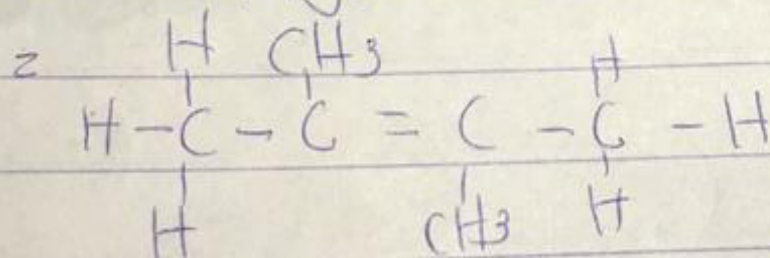 2 H CH3 H
H - C - C = C - C - H
H CH3 H